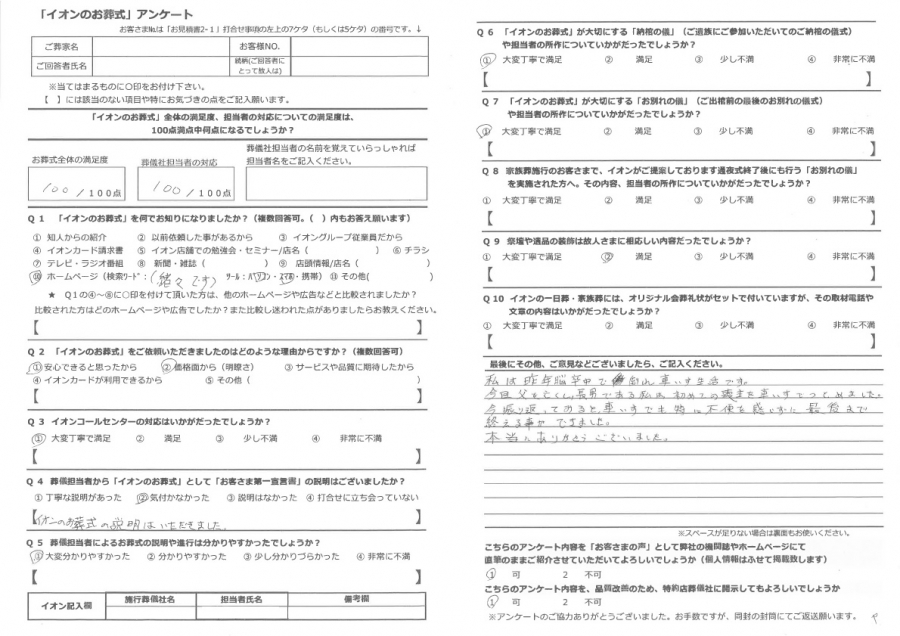 「イオンのお葬式」アンケート
お客さま№は「お見積書2-1」打合せ事項の左上の7ケタ（もしくは5ケタ）の番号です。↓
ご葬家名 お客様NO.
ご回答者氏名 続柄(ご回答者にとって故人は)
※当てはまるものに○印をお付け下さい。
【 】には該当のない項目や特にお気づきの点をご記入願います。
「イオンのお葬式」全体の満足度、担当者の対応についての満足度は、
100点満点中何点になるでしょうか？
お葬式全体の満足度 葬儀社担当者の対応 葬儀社担当者の名前を覚えていらっしゃれば
担当者名をご記入ください。
100/100点 100/100点
Q 1 「イオンのお葬式」を何でお知りになりましたか？（複数回答可。（ ）内もお答え願います）
① 知人からの紹介 ② 以前依頼した事があるから ③ イオングループ従業員だから
④ イオンカード請求書 ⑤ イオン店舗での勉強会・セミナー/店名（ ） ⑥ チラシ
⑦ テレビ・ラジオ番組 ⑧ 新聞・雑誌（ ） ⑨ 店頭情報/店名（ ）
⑩ ホームページ（検索ワード：（諸々です） ツール：パソコン・スマホ・携帯） ⑪ その他( )
★ Q1の④～⑧に○印を付けて頂いた方は、他のホームページや広告などと比較されましたか？
比較された方はどのホームページや広告でしたか？また比較し迷われた点がありましたらお教えください。
【 】
Q 2 「イオンのお葬式」をご依頼いただきましたのはどのような理由からですか？（複数回答可）
①安心できると思ったから ②価格面から（明瞭さ） ③ サービスや品質に期待したから
④ イオンカードが利用できるから ⑤ その他（ ）
【 】
Q 3 イオンコールセンターの対応はいかがだったでしょうか？
① 大変丁寧で満足 ② 満足 ③ 少し不満 ④ 非常に不満
【 】
Q 4 葬儀担当者から「イオンのお葬式」として「お客さま第一宣言書」の説明はございましたか？
① 丁寧な説明があった ②気付かなかった ③ 説明はなかった ④ 打合せに立ち会っていない
【イオンのお葬式の説明はいただきました。 】
Q 5 葬儀担当者によるお葬式の説明や進行は分かりやすかったでしょうか？
①大変分かりやすかった ② 分かりやすかった ③ 少し分かりづらかった ④ 非常に不満
【 】
イオン記入欄 施行葬儀社名 担当者氏名 備考欄
Q 6 「イオンのお葬式」が大切にする「納棺の儀」（ご遺族にご参加いただいてのご納棺の儀式）
や担当者の所作についていかがだったでしょうか？
① 大変丁寧で満足 ② 満足 ③ 少し不満 ④ 非常に不満
【 】
Q 7 「イオンのお葬式」が大切にする「お別れの儀」（ご出棺前の最後のお別れの儀式）
や担当者の所作についていかがだったでしょうか？
① 大変丁寧で満足 ② 満足 ③ 少し不満 ④ 非常に不満
【 】
Q 8 家族葬施行のお客さまで、イオンがご提案しております通夜式終了後にも行う「お別れの儀」
を実施された方へ。その内容、担当者の所作についていかがだったでしょうか？
① 大変丁寧で満足 ② 満足 ③ 少し不満 ④ 非常に不満
【 】
Q 9 祭壇や遺品の装飾は故人さまに相応しい内容だったでしょうか？
① 大変丁寧で満足 ② 満足 ③ 少し不満 ④ 非常に不満
【 】
Q 10 イオンの一日葬・家族葬には、オリジナル会葬礼状がセットで付いていますが、その取材電話や
文章の内容はいかがだったでしょうか？
① 大変丁寧で満足 ② 満足 ③ 少し不満 ④ 非常に不満
【 】
最後にその他、ご意見などございましたら、ご記入ください。
私は昨年脳卒中で倒れ車いす生活です。
今回父を亡くし長男である私は初めての喪主を車いすでつとめました。
今振り返ってみると、車いすでも特に不便を感じずに最後まで
終える事ができました。
本当にありがとうございました。
※スペースが足りない場合は裏面もお使いください。
こちらのアンケート内容を「お客さまの声」として弊社の機関誌やホームページにて
直筆のままご紹介させていただいてよろしいでしょうか（個人情報はふせて掲載致します）
1 可 2 不可
こちらのアンケート内容を、品質改善のため、特約店葬儀社に開示してもよろしいでしょうか
1 可 2 不可
※アンケートのご協力ありがとうございました。お手数ですが、同封の封筒にてご返送願います。